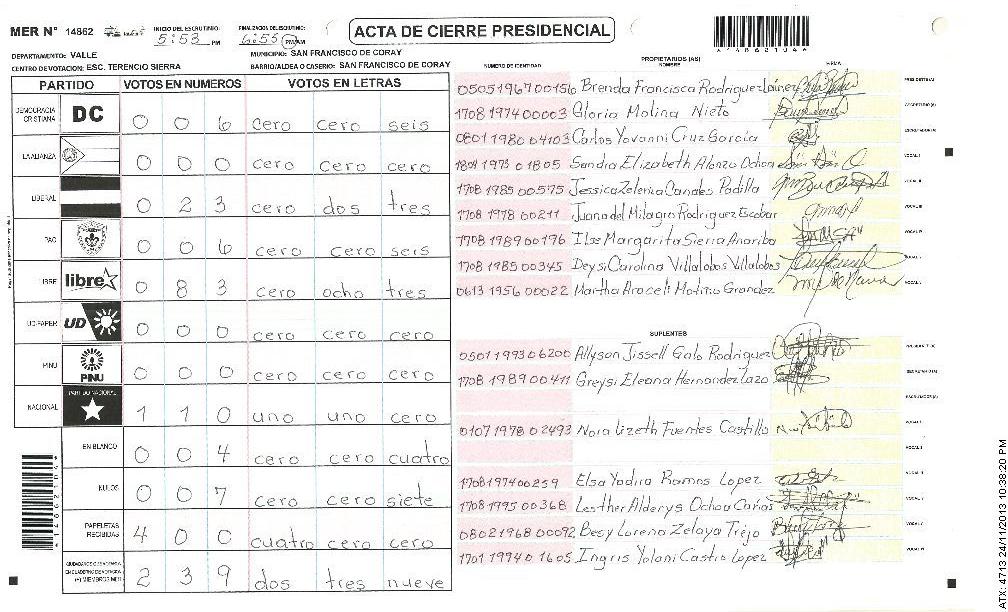 MER N° 14862 INICIO DEL ESCRUTINIO: 5:53 PM FINALIZACION DEL ESCRUTINIO: 6:55 PM/AM ACTA DE CIERRE PRESIDENCIAL
DEPARTAMENTO: VALLE MUNICIPIO: SAN FRANCISCO DE CORAY
CENTRO DE VOTACION: ESC. TERENCIO SIERRA BARRIO/ALDEA O CASERIO: SAN FRANCISCO DE CORAY
PARTIDO VOTOS EN NUMEROS VOTOS EN LETRAS
DEMOCRACIA CRISTIANA DC 0 0 6 cero cero seis
LA ALIANZA 0 0 0 cero cero cero
LIBERAL 0 2 3 cero dos tres
PAC 0 0 6 cero cero seis
LIBRE libre 0 8 3 cero ocho tres
UD-FAPER UD 0 0 0 cero cero cero
PINU PINU 0 0 0 cero cero cero
NACIONAL PARTIDO NACIONAL 1 1 0 uno uno cero
EN BLANCO 0 0 4 cero cero cuatro
NULOS 0 0 7 cero cero siete
PAPELETAS RECIBIDAS 4 0 0 cuatro cero cero
2 3 9 dos tres nueve
NUMERO DE IDENTIDAD PROPIETARIOS (AS) NOMBRE FIRMA
0505196700156 Brenda Francisca Rodriguez Lainez
1708197400003 Gloria Molina Nieto
0801198004103 Carlos Yovanni Cruz Garcia
1804197301805 Sandra Elizabeth Alonzo Ochoa
1708198500575 Jessica Zelenia Canales Padilla
1708197800211 Juana del Milagro Rodriguez Escobar
1708198900196 Ilse Margarita Sierra Anariba
1708198500345 Deysi Carolina Villalobos Villalobos
0613195600022 Martha Araceli Molina Grandez
SUPLENTES
0501199306200 Allyson Jissell Galo Rodriguez
1708198900411 Greysi Eleana Hernandez Lazo
0107197802493 Nora Lizeth Fuentes Castillo
1708197400259 Elsa Yadira Ramos Lopez
1708199500368 Lesther Alderys Ochoa Carias
0802196800092 Besy Lorena Zelaya Trejo
1701197401605 Ingris Yolani Castro Lopez
ATX: 4713 24/11/2013 10:38:20 PM